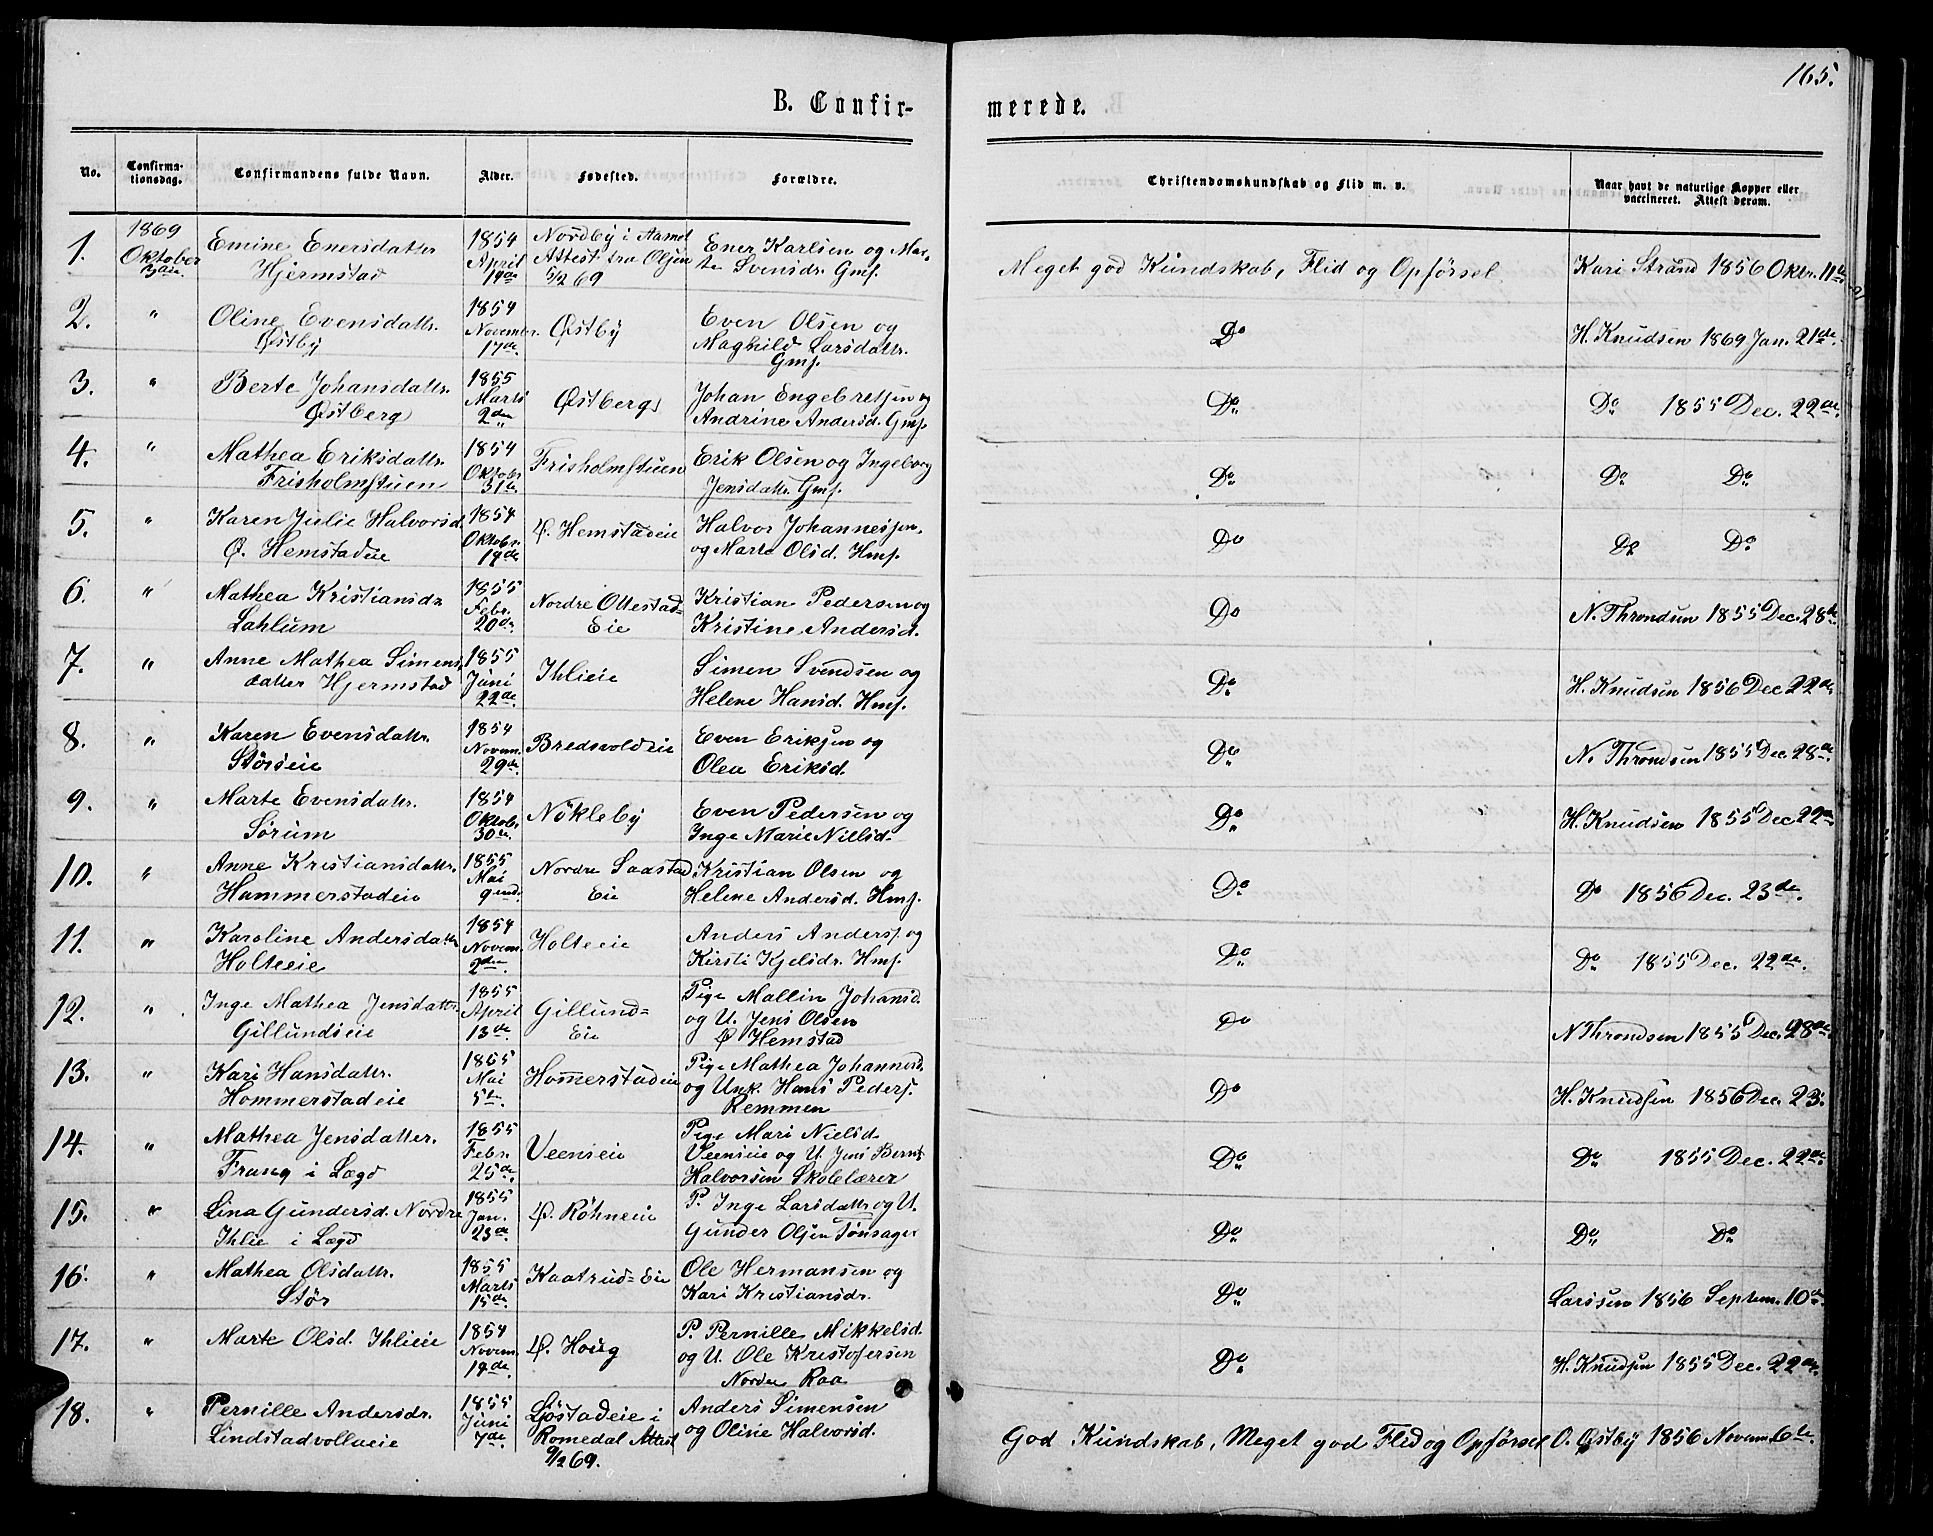 165.
B. Confirmerede.
No. Confirmationsdag. Confirmandens fulde Navn. Alder. Fødested. Forældre. Christendomskundskab og Flid m. v. Naar havt de naturlige Kopper eller vaccineret. Attest derom.
1. 1869 Oktober 3die Emine Enersdatter Hjermstad 1854 April 19de Nordby i Aamot Attest fra Olsen 5/2 69 Ener Karlsen og Marte Svensdr. Gmf. Meget god Kundskab, Flid og Opførsel Kari Strand 1856 Oktr. 11te
2. " Oline Evensdattr. Østby 1854 Novembr. 17de Østby Even Olsen og Maghild Larsdattr. Gmf. Do H. Knudsen 1869 Jan. 21de.
3. " Berte Johansdattr. Østberg 1855 Marts 2den Østberg Johan Engebretsen og Andrine Andersd. Gmf. Do Do 1855 Dec. 22de.
4. " Mathea Eriksdattr. Frisholmstuen 1854 Oktobr 31te Frisholmstuen Erik Olsen og Ingeborg Jensdattr. Gmf. Do Do Do
5. " Karen Julie Halvorsd. Ø. Hemstadeie 1854 Oktobr. 19de Ø. Hemstadeie Halvor Johannessen og Marte Olsd. Hmf. Do Do Do
6. " Mathea Kristiansd. Sahlum 1855 Febr. 20de Nordre Ottestad= Eie Kristian Pedersen og Kristine Andersd. Do N. Throndsen 1855 Dec. 28de
7. " Anne Mathea Simens datter Hjermstad 1855 Juni 22de. Ihlieie Simen Svendsen og Helene Hansd. Hmf. Do H. Knudsen 1856 Dec 22de
8. " Karen Evensdattr. Störseie 1854 Novem. 29de. Bredsvoldeie Even Eriksen og Olea Eriksd. Do N. Throndsen 1855 Dec. 28de.
9. " Marte Evensdatr. Sörum 1854 Oktobr. 30te. Nökleby Even Pedersen og Inge Marie Nielsd. Do H. Knudsen 1855 Dec 22de
10. " Anne Kristiansdattr. Hammerstadeie 1855 Mai 9nde. Nordre Saastad Eie Kristian Olsen og Helene Andersd. Hmf. Do Do 1856 Dec. 23de.
11. " Karoline Andersdattr Holteeie 1854 Novem. 2den. Holteeie Anders Anders. og Kirsti Kjelsdr. Hmf. Do Do 1855 Dec. 22de.
12. " Inge Mathea Jensdattr. Gillundseie 1855 April 13de. Gillund= Eie Pige Mallin Johansd. og U. Jens Olsen Ø Hemstad Do N Throndsen 1855 Dec. 28de
13. " Kari Hansdattr. Hommerstadeie 1855 Mai 5te. Homerstadeie Pige Mathea Johannesd. og Unk. Hans Peders. Remmen Do H. Knudsen 1856 Dec. 23.
14. " Mathea Jensdatter. Frang i Lægd 1855 Febr. 25de. Veenseie Pige Mari Nielsd. Veenseie og U. Jens Bernt Halvorsen Skolelærer Do Do 1855 Dec. 22de.
15. " Lina Gundersd. Nordre Ihlie i Lægd 1855 Jan. 23de. Ø. Röhneeie P. Inge Larsdattr og U. Gunder Olsen Tönsager Do Do Do
16. " Mathea Olsdattr. Stör 1855 Marts 15de. Kaatrud=Eie Ole Hermansen og Kari Kristiansdr. Do Larssen 1856 Septem. 10de.
17. " Marte Olsd. Ihlieie 1854 Novem. 19de. Ø. Houg P. Pernille Mikkelsd. og U. Ole Kristofersen Nordre Raa Do H. Knudsen 1855 Dec. 22de
18. " Pernille Andersdr. Lindstadvollaeie 1855 Juni 7de Ljöstadeie i Romedal Attest 9/2 69. Anders Simensen og Oline Halvorsd. God Kundskab, Meget god Flid og Opførsel O. Østby 1856 Novem. 6te.